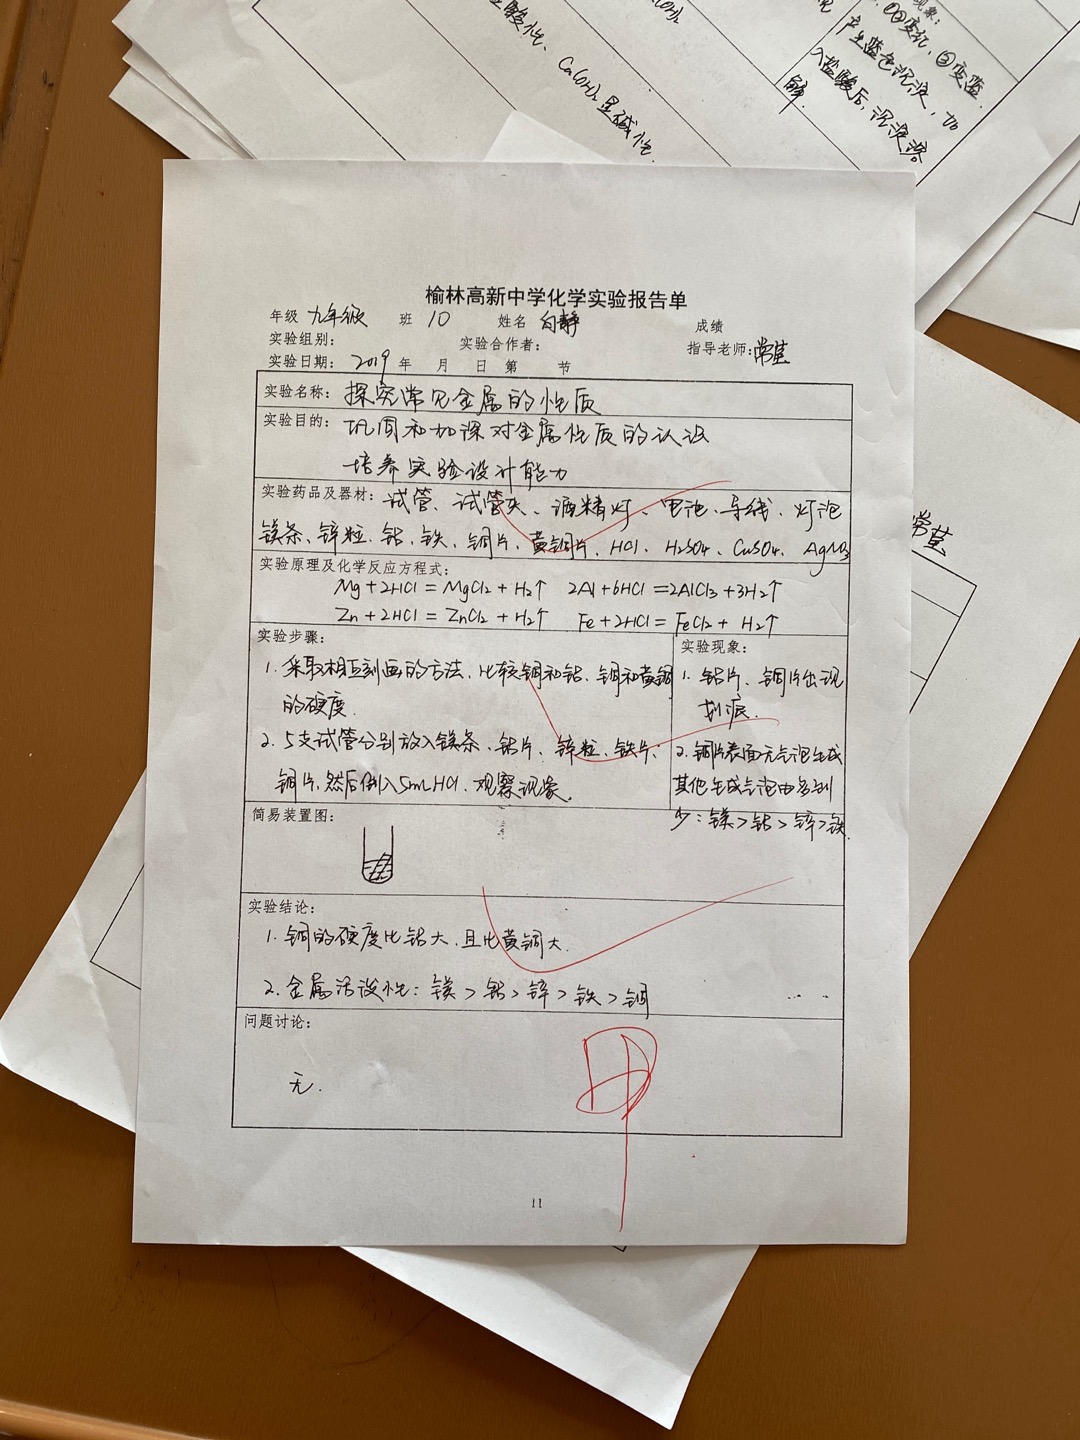 性、Ca(OH)2 显碱性.
变蓝.
产生蓝色沉淀,加
入盐酸后,沉淀溶
解.
榆林高新中学化学实验报告单
年级 九年级 班 10 姓名 白静 成绩
实验组别: 实验合作者: 指导老师: 常莹
实验日期: 2019 年 月 日 第 节
实验名称: 探究常见金属的性质
实验目的: 巩固和加深对金属性质的认识
培养实验设计能力
实验药品及器材: 试管、试管夹、酒精灯、电池、导线、灯泡
镁条、锌粒、铝、铁、铜片、黄铜片、HCl、H2SO4、CuSO4、AgNO3
实验原理及化学反应方程式:
Mg+2HCl=MgCl2+H2↑ 2Al+6HCl=2AlCl3+3H2↑
Zn+2HCl=ZnCl2+H2↑ Fe+2HCl=FeCl2+H2↑
实验步骤:
1. 采取相互刻画的方法,比较铜和铝、铜和黄铜
的硬度.
2. 5支试管分别放入镁条、铝片、锌粒、铁片、
铜片,然后倒入5mLHCl,观察现象.
实验现象:
1. 铝片、铜片出现
划痕.
2. 铜片表面无气泡生成
其他生成气泡由多到
少:镁>铝>锌>铁
简易装置图:
实验结论:
1. 铜的硬度比铝大,且比黄铜大.
2. 金属活泼性:镁>铝>锌>铁>铜
问题讨论:
无.
甲
11
常莹